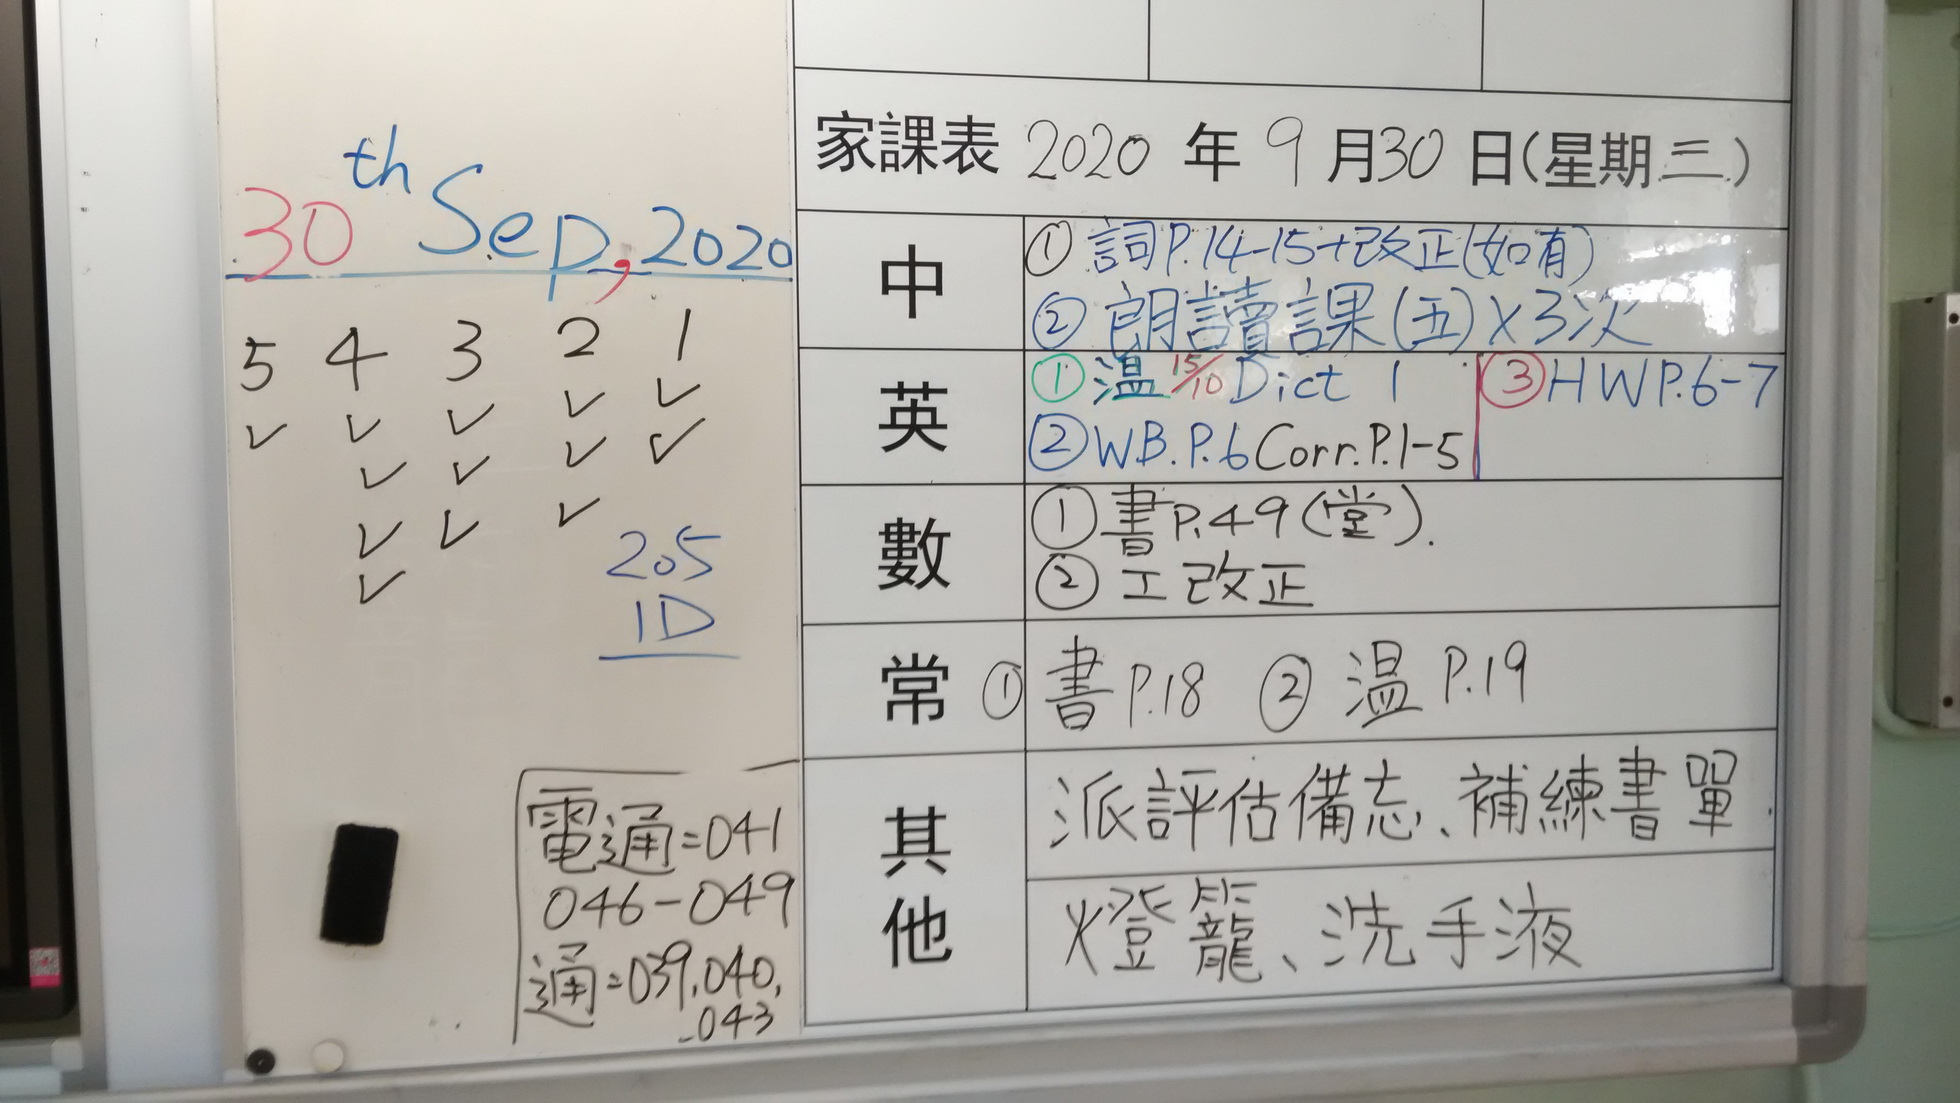 30th Sep, 2020
5 4 3 2 1
205
1D
電通=041
046-049
通=039,040,
043
家課表 2020 年 9 月 30 日(星期三)
中
① 詞P.14-15+改正(如有)
② 朗讀課(五)X3次
英
① 温 15/10 Dict 1
② W.B.P.6 Corr.P.1-5
③ HW P.6-7
數
① 書P.49(堂).
② 工改正
常
① 書 P.18 ② 溫 P.19
其他
派評估備忘、補練書單
燈籠、洗手液